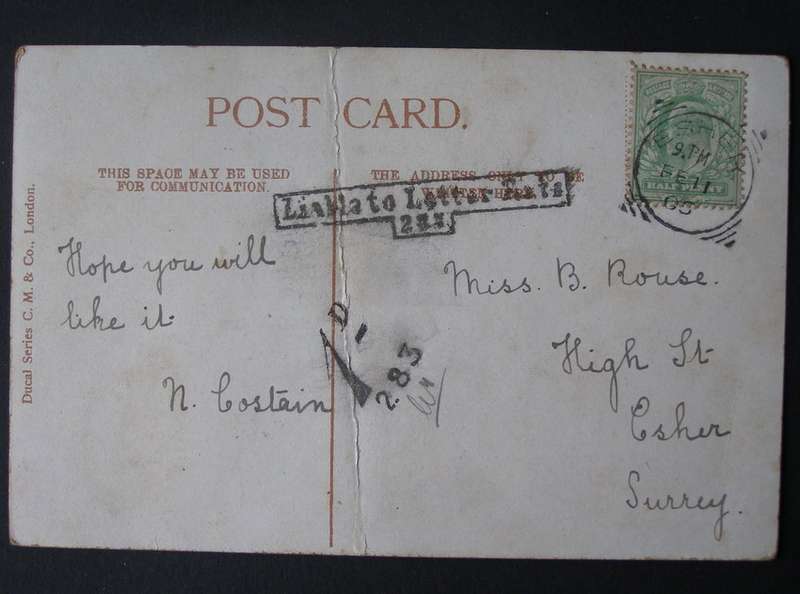 POST CARD.
THIS SPACE MAY BE USED
FOR COMMUNICATION.
THE ADDRESS ONLY TO BE
WRITTEN HERE.
Liable to Letter Rate
283
Ducal Series C. M. & Co., London.
Hope you will
like it
N. Costain
1 D
283
Miss. B. Rouse.
High St
Esher
Surrey.
9. PM
FE 11
HALFPENNY